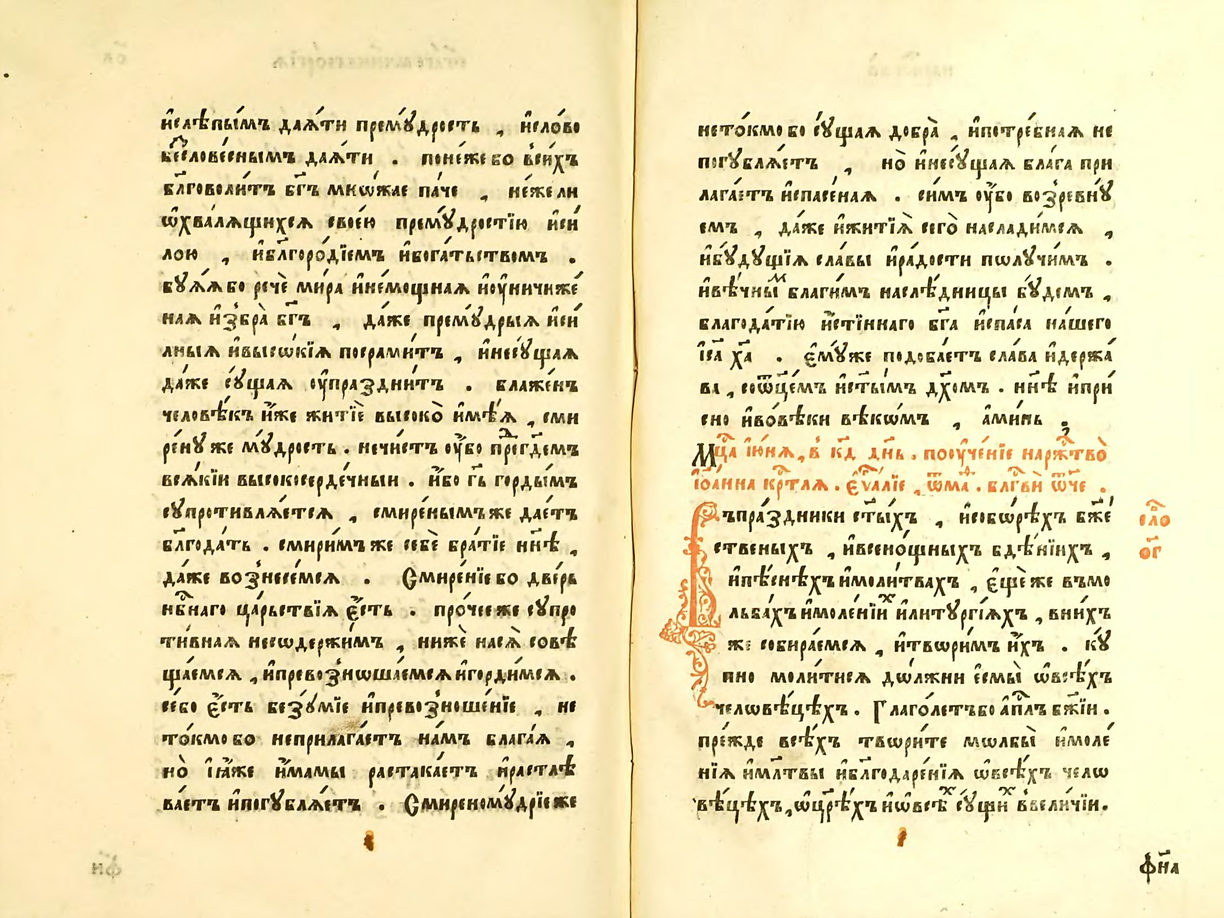 и҆слѣпы́мъ даѧ́ти премꙋ́дрость , и҆сло́во
бесловеснымъ даѧ́ти . поне́же бо всѣ́хъ
бл҃говоли́тъ бг҃ъ мно́жае па́че , не́жели
ѿхвалѧ́щихсѧ свое́ю премꙋ́дростїю и҆си́
лою , и҆бл҃горо́дїемъ и҆бога́тьствомъ .
бꙋ́ѧѧ бо речѐ ми́ра и҆не́мощнаѧ и҆ᲂу҆ничиже́
наѧ и҆збра̀ бг҃ъ , да́же премꙋ́дрыѧ и҆си́
лныѧ и҆высѡ́кїѧ посрами́тъ , и҆несꙋ́щаѧ
да́же сꙋ́щаѧ ᲂу҆праздни́тъ . блаже́нъ
человѣ́къ и҆́же житїѐ высоко̀ и҆мѣ́ѧ , сми
ре́нꙋ же мꙋ́дрость . нечи́стъ ᲂу҆́бо пре́гдⷭ҇емъ
всѧ́кїи высокосерде́чныи . и҆́бо гь҃ го́рдымъ
сꙋпротивлѧ́етсѧ , смире́нымъ же дае́тъ
бл҃года́ть . смири́мъ же себѐ бра́тїе нн҃ѣ ,
да́же вознесе́мсѧ . Смире́нїе бо две́рь
нб҃наго ца́рьствїѧ є҆́сть . про́чее же сꙋпро
ти́внаѧ несѡдержи́мъ , ни́же насѧ̀ совѣ
ща́емсѧ , и҆превозноша́емсѧ и҆горди́мсѧ .
се́бо є҆́сть безꙋ́мїе и҆превозноше́нїе , не
то́кмо бо неприлага́етъ на́мъ блага́ѧ ,
но̀ і҆ꙗ҆́же и҆́мамы растака́етъ и҆растлѣ
ва́етъ и҆погꙋблѧ́етъ . Смиреномꙋ́дрїе же
нето́кмо бо сꙋ́щаѧ добра̀ , и҆потре́бнаѧ не
погꙋблѧ́етъ , но̀ и҆несꙋ́щаѧ бла́га при
лага́етъ и҆спасе́наѧ . си́мъ ᲂу҆́бо возревнꙋ́
емъ , да́же и҆житїѧ̀ сего̀ наслади́мсѧ ,
и҆бꙋ́дꙋщїѧ сла́вы и҆ра́дости пѡлꙋчи́мъ .
и҆вѣ́чныⷨ благи́мъ наслѣ́дницы бꙋ́демъ ,
благода́тїю и҆́стїннаго бг҃а и҆спа́са на́шего
і҆са҃ ха҃ . є҆мꙋ́же подоба́етъ сла́ва и҆держа́
ва , соѿце́мъ и҆ст҃ы́мъ дх҃омъ . нн҃ѣ и҆при́
сно и҆во́вѣки вѣкѡ́мъ , а҆ми́нь
Мцⷭ҇а і҆ю́нѧ , в҆ к҃д днь . поᲂуче́нїе на ржⷭ҇тво̀
і҆ѡа́нна крⷭ҇тлѧ . є҆ѵⷢ҇алїе , ѿмаⷴ . блгⷭ҇ви ѿче .
Въпра́здники ст҃ы́хъ , и҆собѡ́рѣхъ бже́
ственыхъ , и҆всено́щныхъ бдѣ́нїихъ ,
и҆пѣ́снѣхъ и҆моли́твахъ , є҆ще́ же въмо
льба́хъ и҆моле́нїиⷯ и҆литꙋргі́ѧхъ , вни́хъ
же собира́емсѧ , и҆твори́мъ и҆́хъ . кꙋ
пно моли́тисѧ дѡ́лжни есмы̀ ѡ҆всѣ́хъ
челѡвѣ́цѣхъ . Глаго́летъ бо а҆пⷭ҇лъ бж҃їи .
пре́жде всѣ́хъ твѡри́те мѡлбы̀ и҆моле́
нїѧ и҆мл҃твы и҆благодаре́нїѧ ѡ҆всѣ́хъ челѡ
вѣ́цѣхъ , ѡ҆цр҃ѣхъ и҆ѡ҆всѣⷯ сꙋ́щиⷯ в҆вели́чїи .
сло
ог҃
фн҃а